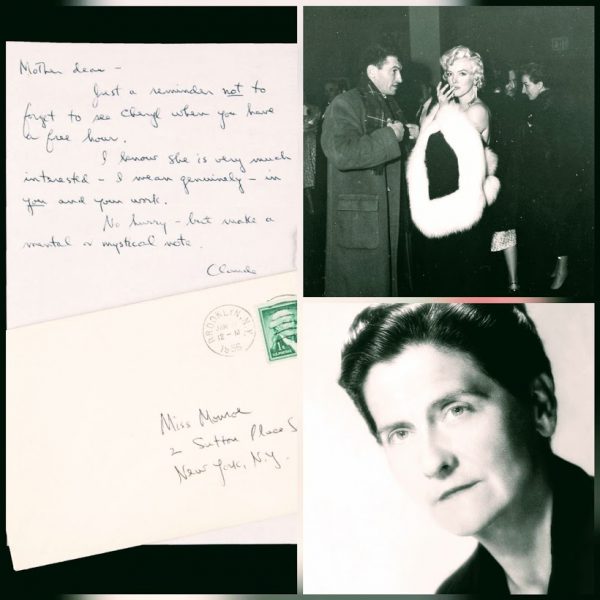 Mother dear –
Just a reminder not to
forget to see Cheryl when you have
a free hour.
I know she is very much
interested – I mean genuinely – in
you and your work.
No hurry – but make a
mental or mystical note.
Claude
BROOKLYN, N.Y.
12 - M
1956
Miss Monroe
2 Sutton Place S
New York, N.Y.